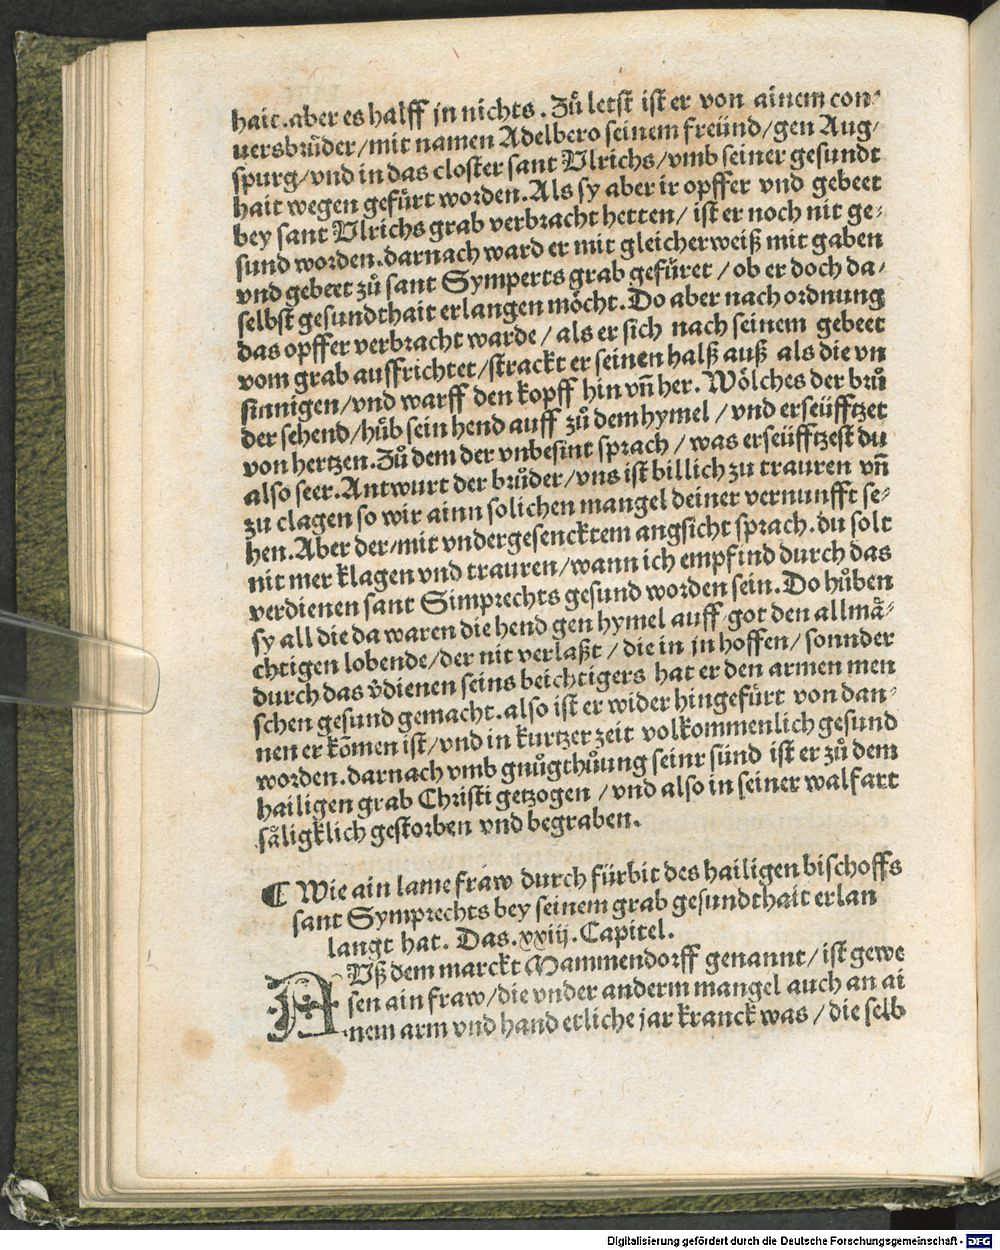 hait.aber es halff jn nichts. Zů letst ist er von ainem con-
uersbrůder/mit namen Adelbero seinem freünd/gen Aug/
spurg/vnd in das closter sant Vlrichs/vmb seiner gesundt
hait wegen gefürt worden. Als sy aber ir opffer vnd gebeet
bey sant Vlrichs grab verbracht hetten/ ist er noch nit ge-
sund worden. darnach ward er mit gleicherweiß mit gaben
vnd gebeet zů sant Symperts grab gefüret / ob er doch da-
selbst gesundthait erlangen möcht. Do aber nach ordnung
das opffer verbracht warde / als er sich nach seinem gebeet
vom grab auffrichtet/strackt er seinen halß auß als die vn
sinnigen/vnd warff den kopff hin vñ her. Wölches der brů
der sehend/hůb sein hend auff zů dem hymel / vnd erseüfftzet
von hertzen. Zů dem der vnbesint sprach / was erseüfftzest du
also seer. Antwurt der brůder/vns ist billich zu trauren vñ
zu clagen so wir ainn solichen mangel deiner vernunfft se-
hen. Aber der/mit vndergesencktem angsicht sprach. du solt
nit mer klagen vnd trauren/wann ich empfind durch das
verdienen sant Simprechts gesund worden sein. Do hůben
sy all die da waren die hend gen hymel auff got den allmå-
chtigen lobende/der nit verlaßt / die in jn hoffen/ sonnder
durch das v̊dienen seins beichtigers hat er den armen men
schen gesund gemacht. also ist er wider hingefürt von dan-
nen er kom̄en ist/vnd in kurtzer zeit volkommenlich gesund
worden. darnach vmb gnůgthůung seinr sünd ist er zů dem
hailigen grab Christi getzogen / vnd also in seiner walfart
såligklich gestorben vnd begraben.
¶ Wie ain lame fraw durch fürbit des hailigen bischoffs
sant Symprechts bey seinem grab gesundthait erlan
langt hat. Das .xxiij. Capitel.
AVß dem marckt Mammendorff genannt/ ist gewe
sen ain fraw/die vnder anderm mangel auch an ai
nem arm vnd hand etliche jar kranck was / die selb
Digitalisierung gefördert durch die Deutsche Forschungsgemeinschaft - DFG